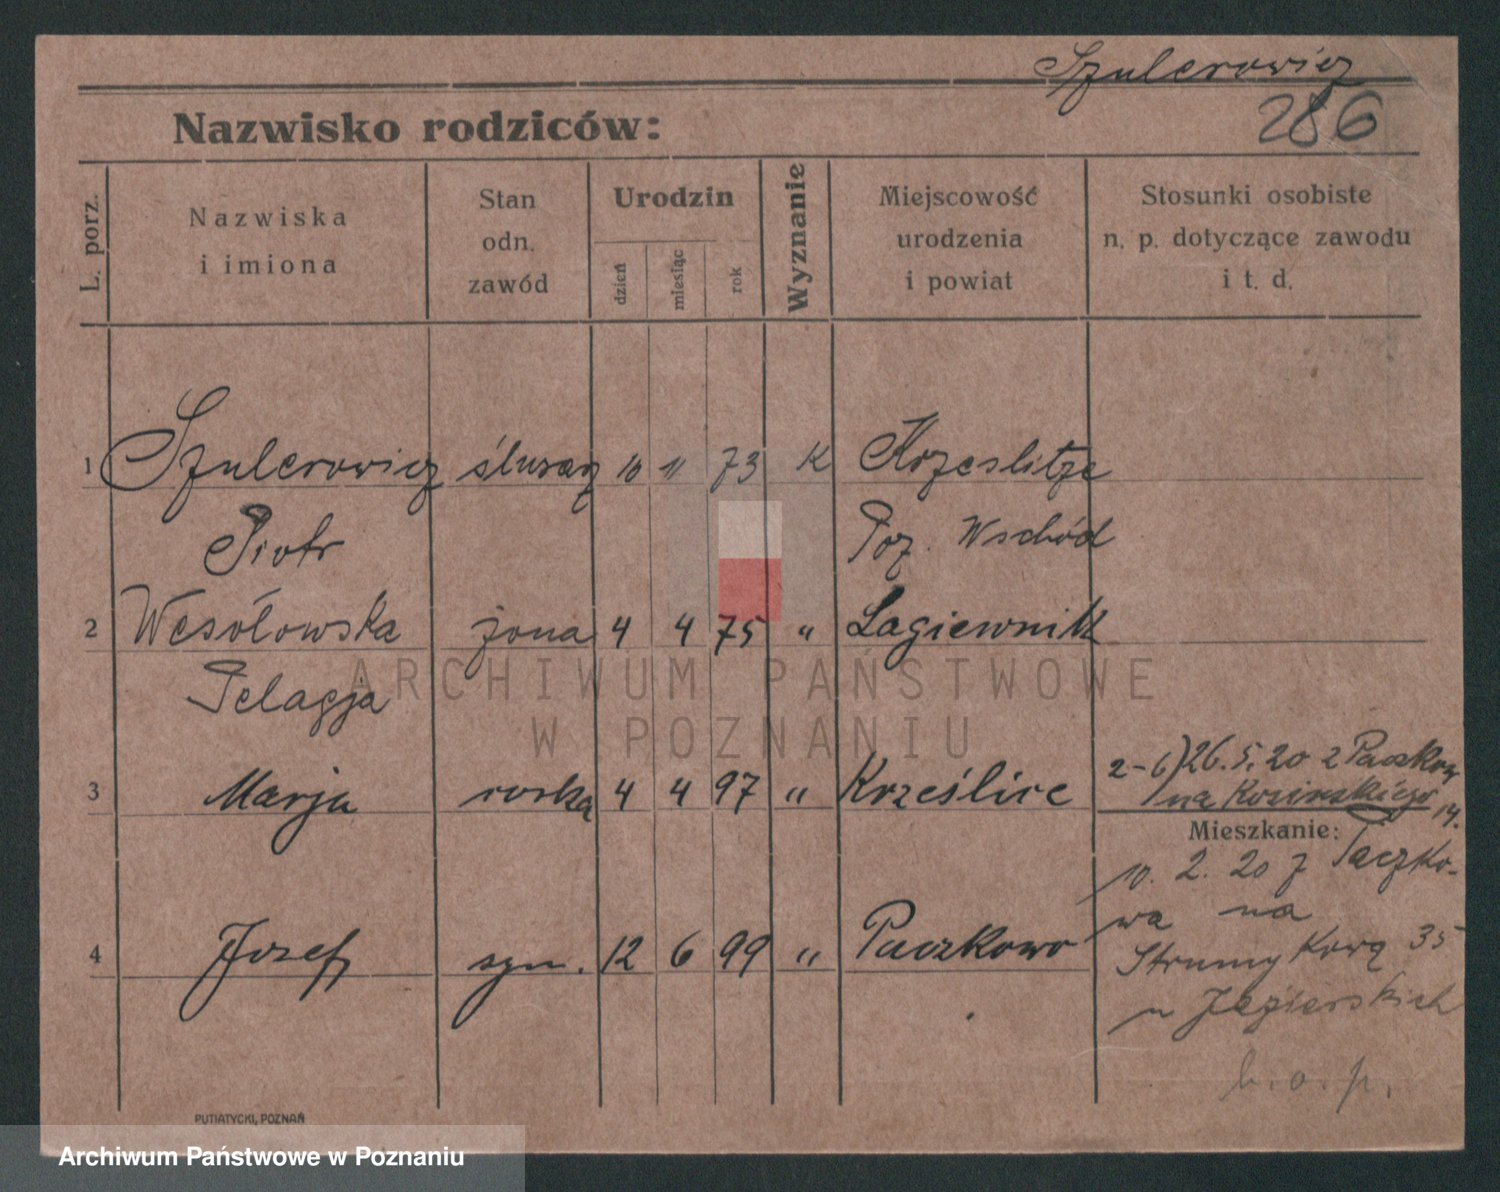 Szulcrowicz
Nazwisko rodziców:
286
L. porz.
Nazwiska
i imiona
Stan
odn.
zawód
Urodzin
dzień
miesiąc
rok
Wyznanie
Miejscowość
urodzenia
i powiat
Stosunki osobiste
n. p. dotyczące zawodu
i t. d.
1 Szulcrowicz ślusarz 10 11 73 K Krzeslitze
Piotr Poz. Wschód
2 Wesołowska żona 4 4 75 " Łagiewnik
Pelagja
3 Marja córka 4 4 97 " Krześlice
2-6) 26.5.20 z Paczkow
na Kosińskiego 14.
Mieszkanie:
10. 2. 20 z Paczko-
wa na
Strumykową 35
u Jezierskich
4 Jozef syn. 12 6 99 " Paczkowo
b.o.p.
PUTIATYCKI, POZNAŃ
ARCHIWUM PAŃSTWOWE
W POZNANIU
Archiwum Państwowe w Poznaniu